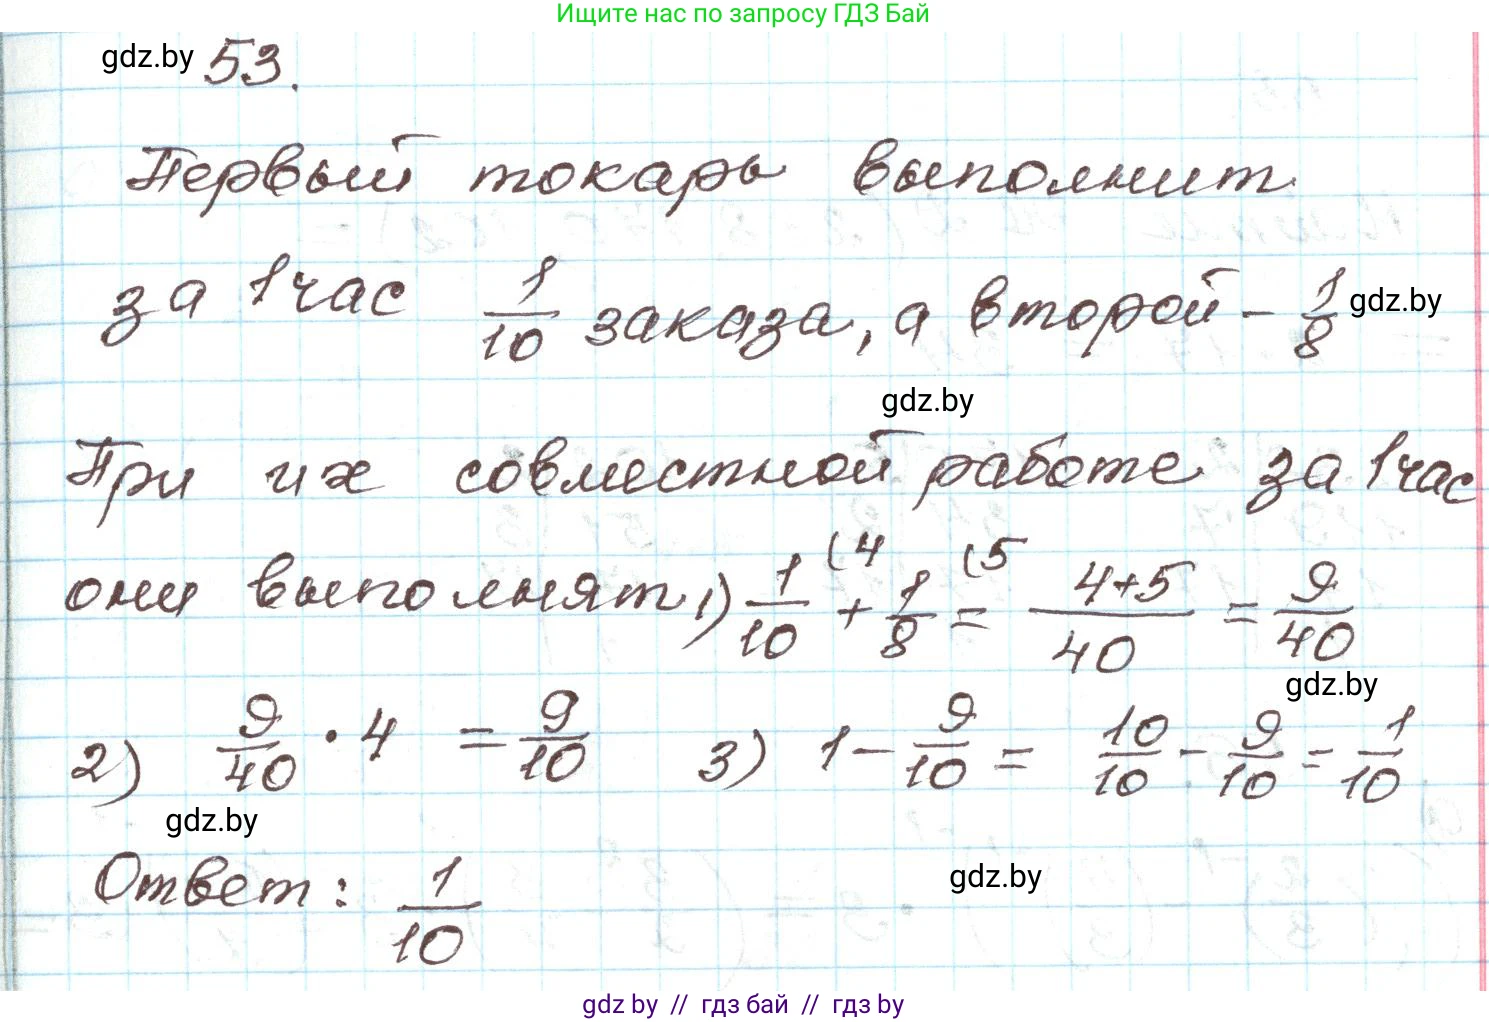 Ищите нас по запросу ГДЗ Бай
gdz.by 53.
Первый токарь выполнит
за 1 час 1/10 заказа, а второй - 1/8 gdz.by
gdz.by
При их совместной работе за 1 час
они выполнят 1) 1/10 (4 + 1/8 (5 = 4+5/40 = 9/40
gdz.by
2) 9/40 · 4 = 9/10 3) 1 - 9/10 = 10/10 - 9/10 = 1/10
gdz.by
Ответ: 1/10
gdz.by
gdz by // гдз бай // гдз by